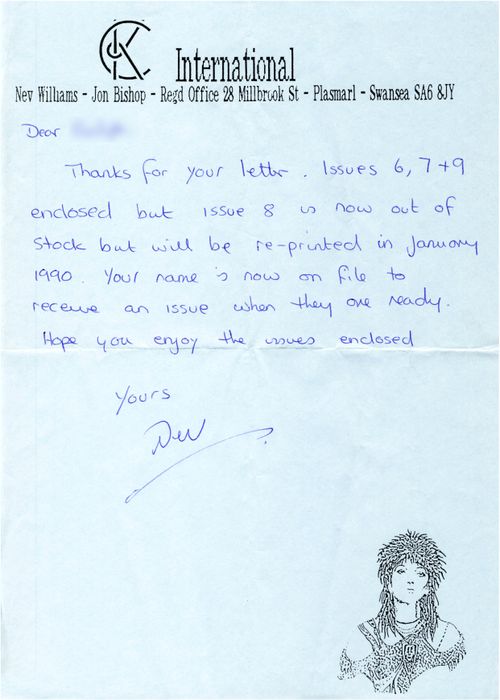 CK
International
Nev Williams - Jon Bishop - Regd Office 28 Millbrook St - Plasmarl - Swansea SA6 8JY
Dear
Thanks for your letter. Issues 6, 7+9
enclosed but issue 8 is now out of
stock but will be re-printed in January
1990. Your name is now on file to
receive an issue when they are ready.
Hope you enjoy the issues enclosed
Yours
Nev